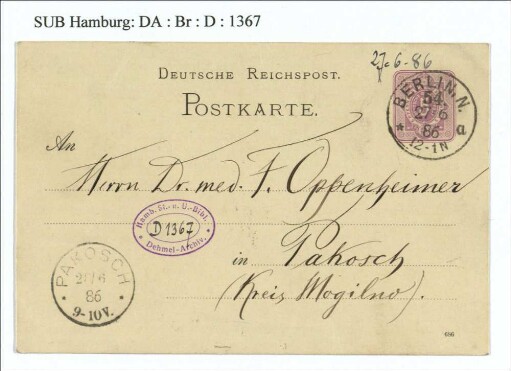 SUB Hamburg: DA : Br : D : 1367
27.6.86
DEUTSCHE REICHSPOST.
POSTKARTE.
BERLIN.N.
54.
27 6
86
* a
12-1N
An
Herrn Dr. med. F. Oppenheimer
Hamb. St.- u. U.-Bibl.
D 1367
* Dehmel-Archiv. *
in Pakosch
(Kreis Mogilno).
PAKOSCH
6
86
9-10V.